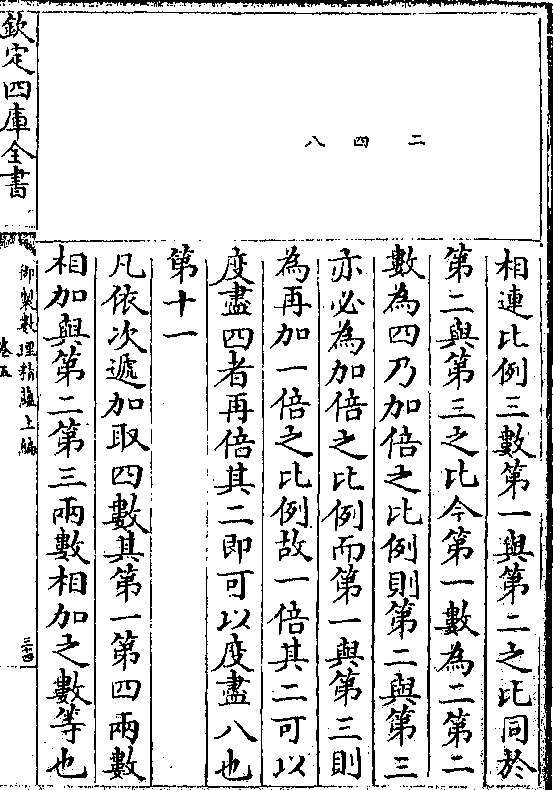 二 四 八
相連比例三數第一與第二之比同於
第二與第三之比今第一數為二第二
數為四乃加倍之比例則第二與第三
亦必為加倍之比例而第一與第三則
為再加一倍之比例故一倍其二可以
度盡四者再倍其二即可以度盡八也
第十一
凡依次遞加取四數其第一第四兩數
相加與第二第三兩數相加之數等也
欽定四庫全書
御製數理精藴上編
卷五
三十四